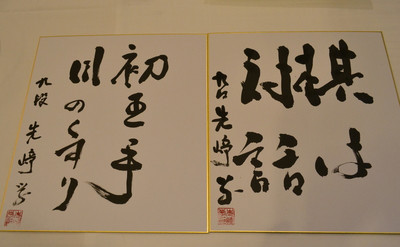 棋は
対話
九段 先崎学
初王手
目のくすり
九段 先崎学